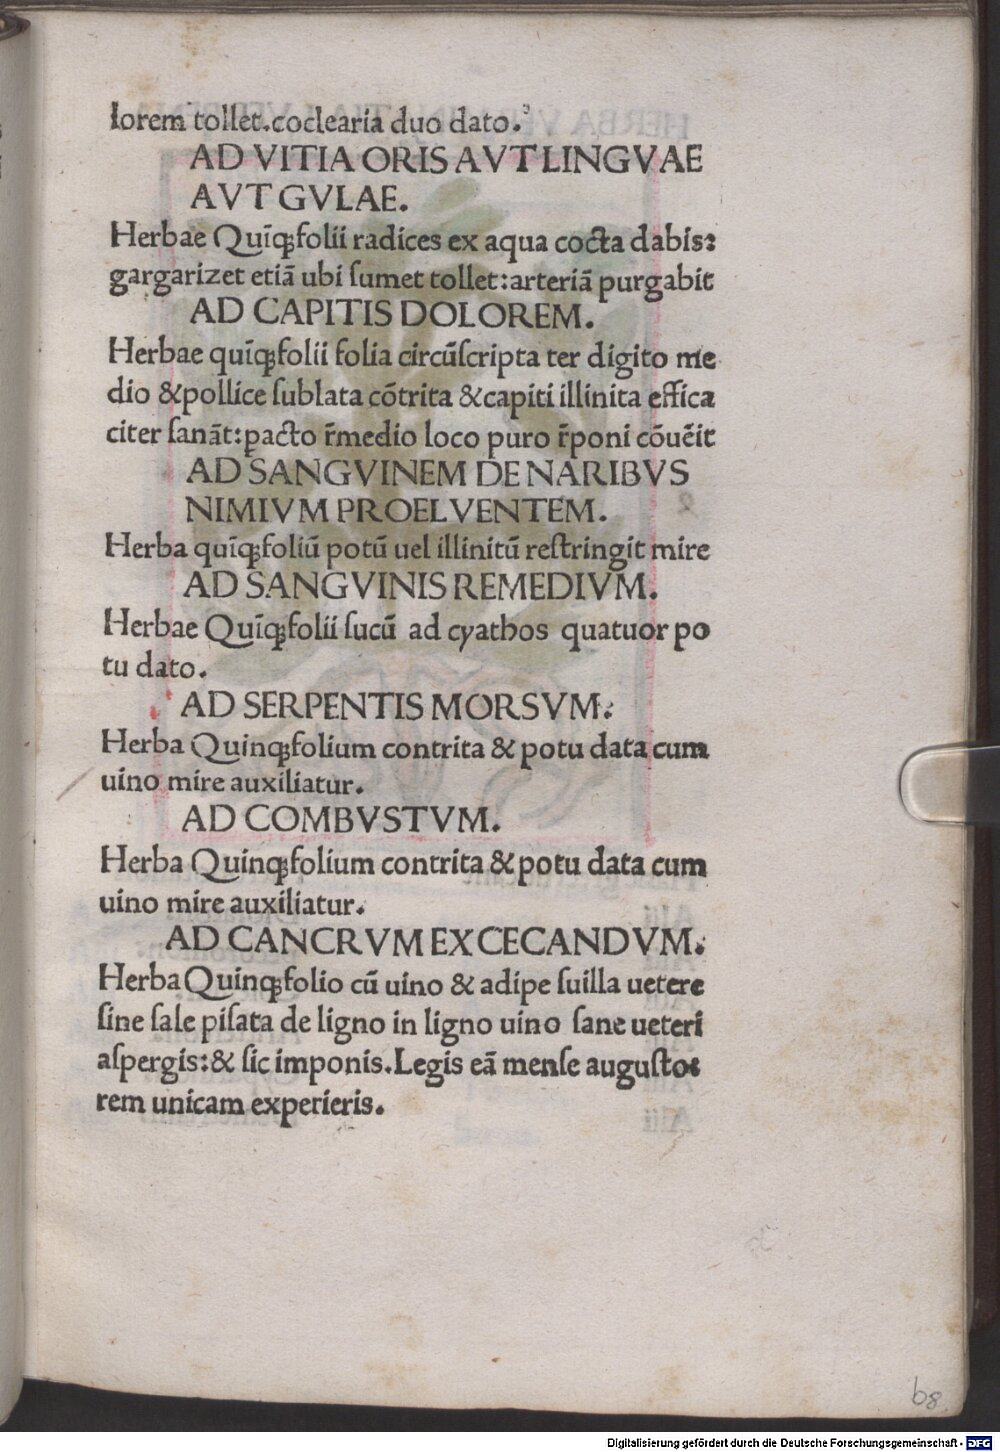 lorem tollet.coclearia duo dato.
AD VITIA ORIS AVT LINGVAE
AVT GVLAE.
Herbae Quīqꝫfolii radices ex aqua cocta dabis:
gargarizet etiā ubi ſumet tollet:arteriā purgabit
AD CAPITIS DOLOREM.
Herbae quīqꝫfolii folia circūſcripta ter digito me
dio &pollice ſublata cōtrita &capiti illinita effica
citer ſanāt:pacto r̄medio loco puro r̄poni cōuēit
AD SANGVINEM DE NARIBVS
NIMIVM PROELVENTEM.
Herba quīqꝫfoliū potū uel illinitū reſtringit mire
AD SANGVINIS REMEDIVM.
Herbae Quīqꝫfolii ſucū ad cyathos quatuor po
tu dato.
AD SERPENTIS MORSVM.
Herba Quinqꝫfolium contrita & potu data cum
uino mire auxiliatur.
AD COMBVSTVM.
Herba Quinqꝫfolium contrita &potu data cum
uino mire auxiliatur.
AD CANCRVM EXCECANDVM.
Herba Quinqꝫfolio cū uino & adipe ſuilla uetere
ſine ſale piſata de ligno in ligno uino ſane ueteri
aſpergis:& ſic imponis.Legis eā menſe auguſto:
rem unicam experieris.
b8
Digitalisierung gefördert durch die Deutsche Forschungsgemeinschaft - DFG